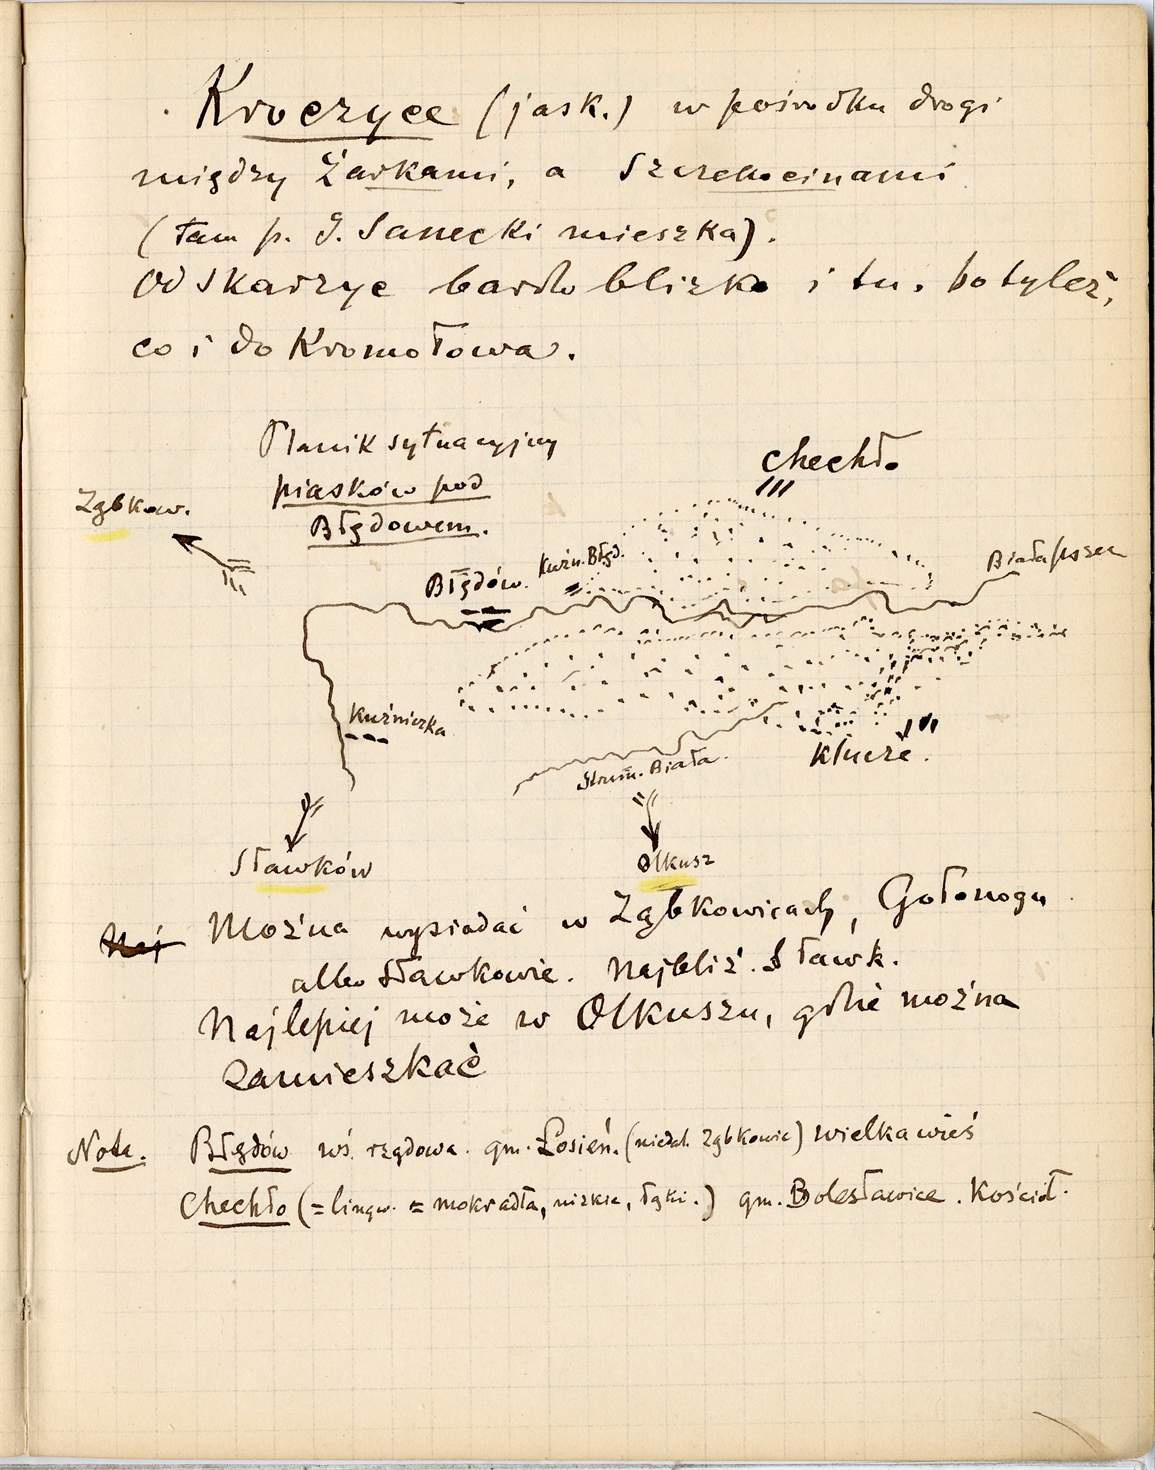 Kroczyce (jask.) w pośrodku drogi
między Żarkami, a Szczekocinami
(tam p. J. Sanecki mieszka).
Od Skarżyc bardzo blizko i tu. bo tyleż,
co i do Kromołowa.
Planik sytuacyjny
piasków pod
Błędowem.
Chechło
Ząbkow.
Błędów.
Kuźn. Błęd.
Biała
Kuźniczka
Strum. Biała.
Klucze.
Sławków
Olkusz
Naj
Można wysiadać w Ząbkowicach, Gołonogu
albo Sławkowie. Najbliż. Sławk.
Najlepiej może w Olkuszu, gdzie można
zamieszkać
Nota. Błędów wś. rządowa. gm. Łosień. (niedal. Ząbkowic) wielka wieś
Chechło (= lingw. = mokradła, nizkie, łąki.) gm. Bolesławice. Kościół.